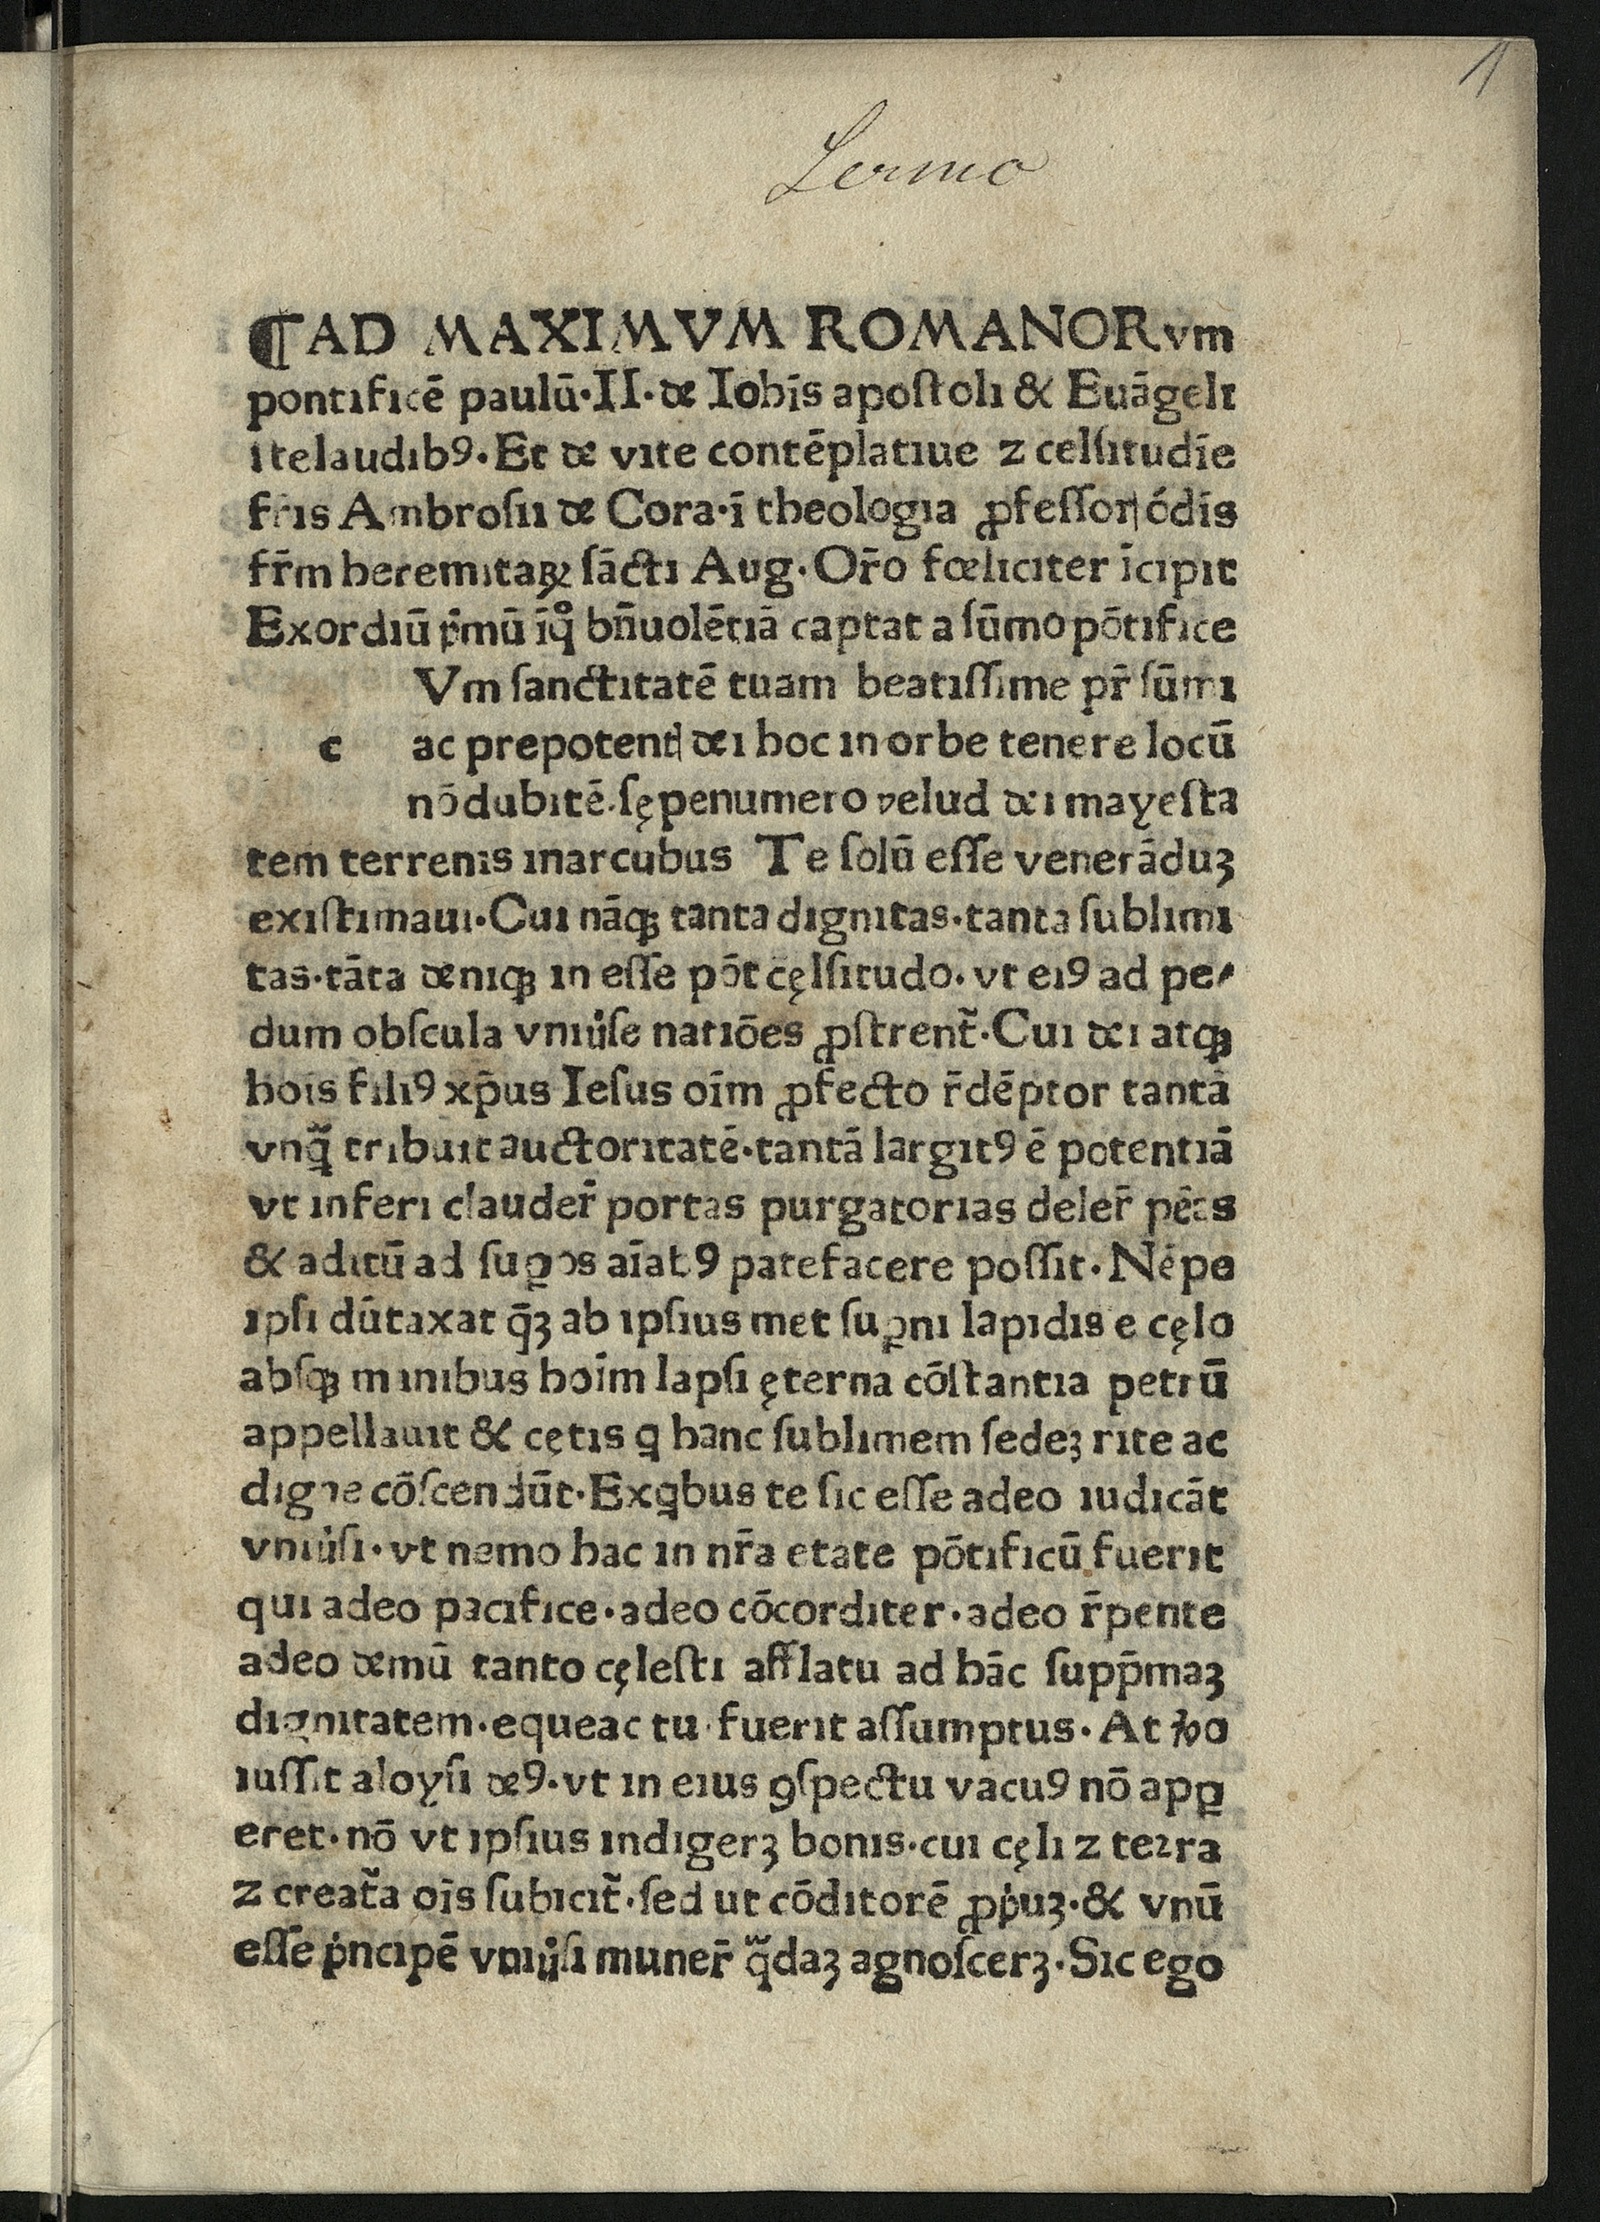 1
Sermo
¶AD MAXIMVM ROMANORvm
pontificē paulū·II· de Iohīs apoſtoli & Euāgelı
ſtelaudib9· Et de vite contēplatiue ⁊ celſitudīe
fr̄is Ambroſii de Cora·ī theologia ꝓfeſſorꝭ ódīs
fr̄m heremitaꝝ ſācti Aug·Or̄o fœliciter īcipit
Exordiū pͥmū īqͦ bn̄uolētiā captat a ſūmo pōtifice
Vm ſanctitatē tuam beatiſſime pr̄ ſūmi
c ac prepotentꝭ dei hoc in orbe tenere locū
nōdubitē·ſępenumero velud dei mayeſta
tem terrenis inarcubus Te ſolū eſſe venerāduꝫ
exiſtimaui·Cui nāqꝫ tanta dignitas·tanta ſublimi
tas·tāta deniqꝫ in eſſe pōt cęlſitudo·vt ei9 ad pe⸗
dum obſcula vniu̾ſe natiōes ꝓſtrent̃·Cui dei atqꝫ
hois fili9 xp̄us Ieſus oīm ꝓfecto r̄dēptor tantā
vnqᷓ tribuit auctoritatē·tantā largit9 ē potentiā
vt inferi clauder̄ portas purgatorias deler̄ pēas
& aditū ad ſuꝑos aīab9 patefacere poſſit·Nēpe
ipſi dūtaxat q̄ꝫ ab ipſius met ſuꝑni lapidis e cęlo
abſqꝫ manibus hoīm lapſi ęterna cōſtantia petrū
appellauit & cętis ꝗ hanc ſublimem ſedeꝫ rite ac
digne cōſcendūt·Exꝗbus te ſic eſſe adeo iudicāt
vniu̾ſi·vt nemo hac in nr̄a etate pōtificū fuerit
qui adeo pacifice·adeo cōcorditer·adeo r̄pente
adeo demū tanto cęleſti afflatu ad hāc ſupp̄maꝫ
dignitatem·equeac tu·fuerit aſſumptus·At ꝟo
iuſſit aloyſi de9·vt in eius ꝯſpectu vacu9 nō apꝑ
eret·nō vt ipſius indigerꝫ bonis·cui cęli ⁊ teꝛra
⁊ creat̃a oīs ſubicit̃·ſed ut cōditorē ꝓpͥuꝫ·& vnū
eſſe pͥncipē vniu̾ſi muner̄ qᷓdaꝫ agnoſcerꝫ·Sic ego